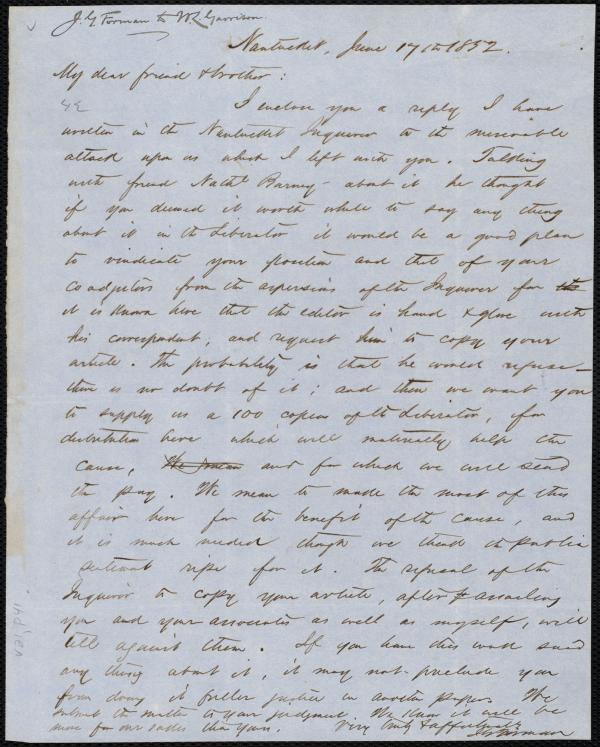 J. G. Forman to W. L. Garrison.
Nantucket, June 17th 1852.
My dear friend & brother:
I enclose you a reply I have
written in the Nantucket Inquirer to the miserable
attack upon us which I left with you. Talking
with friend Nathl Barney about it he thought
if you deemed it worth while to say any thing
about it in the Liberator it would be a good plan
to vindicate your position and that of your
coadjutors from the aspersions of the Inquirer for the
it is known here that the editor is hand & glove with
his correspondent, and request him to copy your
article. The probability is that he would refuse—
there is no doubt of it; and then we want you
to supply us a 100 copies of the Liberator, for
distribution here which will materially help the
cause, We mean and for which we will send
the pay. We mean to make the most of this
affair here for the benefit of the cause, and
it is much needed though we think the public
sentiment ripe for it. The refusal of the
Inquirer to copy your article, after assailing
you and your associates as well as myself, will
tell against them. If you have this week said
any thing about it, it may not preclude you
from doing it fuller justice in another paper. We
submit the matter to your judgment. We know it will be
more for our sakes than yours. Very truly & affectionately
J. G. Forman